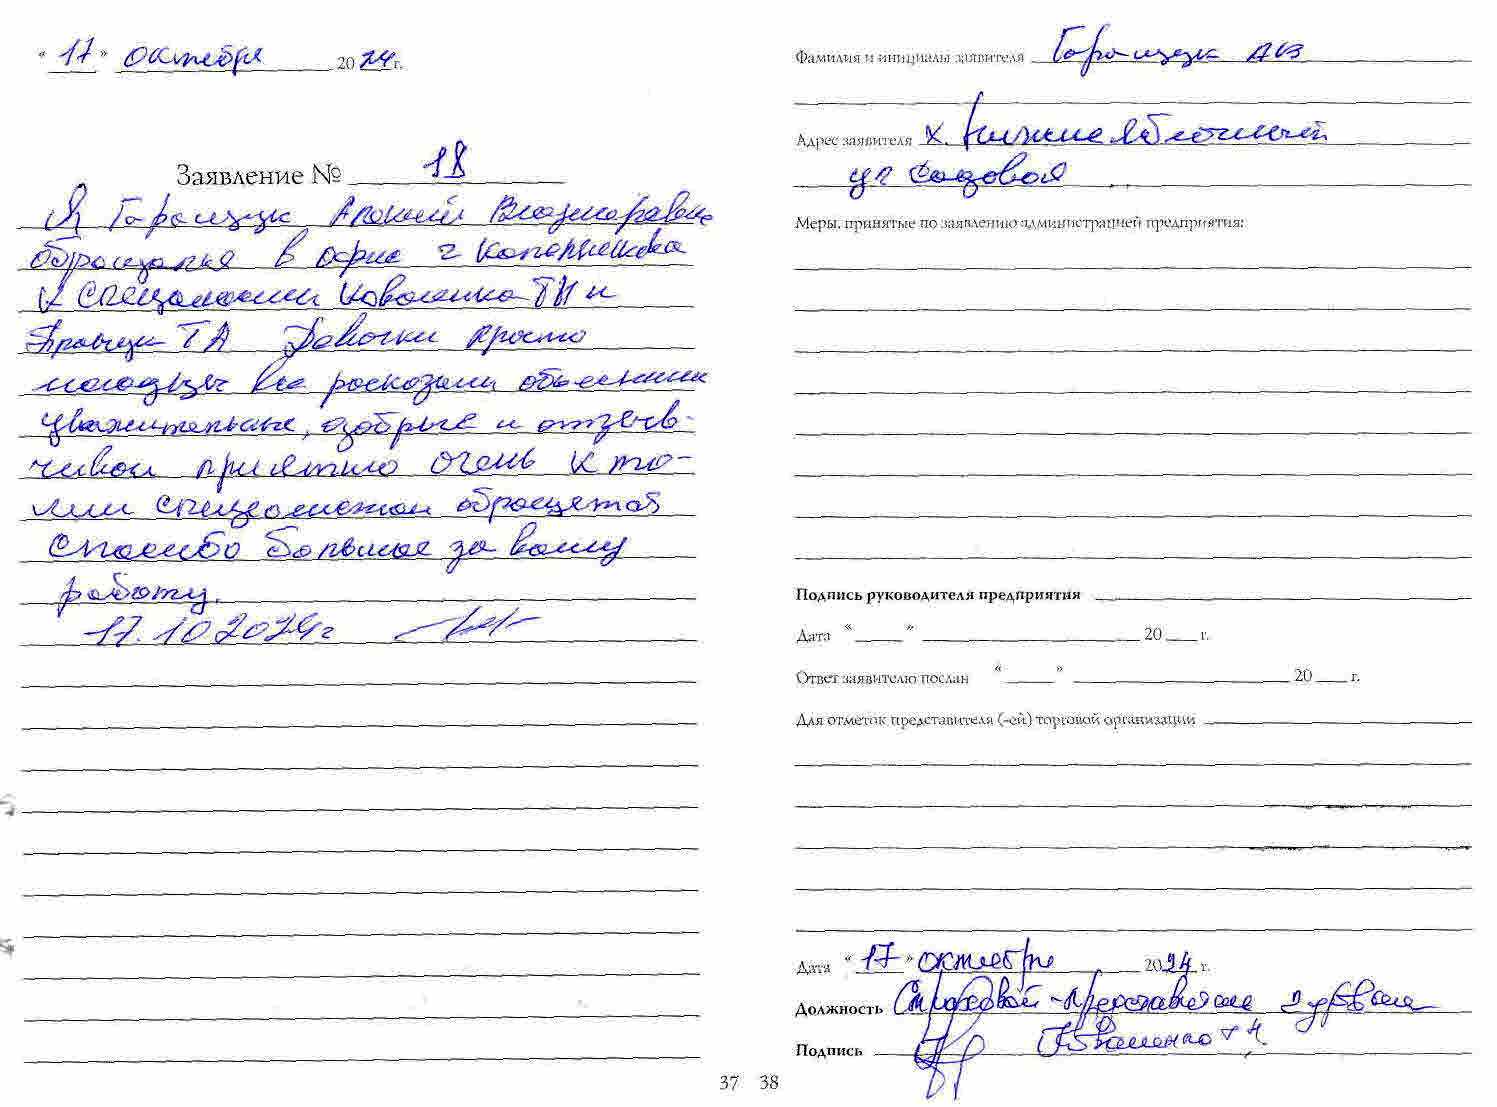 " 17 " октября 2024 г.
Заявление № 18
Я Горощук Владимировна
обращалась в офис г
к специалистам Коваленко ТН и
ТА Девочки просто
молодцы все росказали объеснили
уважительные, добрые и отзыв-
чивои приятно очень к та-
ким специалистам оброщятся
Спасибо большое за вашу
работу.
17.10.2024г
37
Фамилия и инициалы заявителя Горощук АВ
Адрес заявителя х. Нижнеяблочный
ул Садовая
Меры, принятые по заявлению администрацией предприятия:
Подпись руководителя предприятия
Дата " " 20 г.
Ответ заявителю послан " " 20 г.
Для отметок представителя (-ей) торговой организации
Дата " 17 " октября 2024 г.
Должность Страховой-представитель 2 уровня
Подпись Коваленко ТН
38